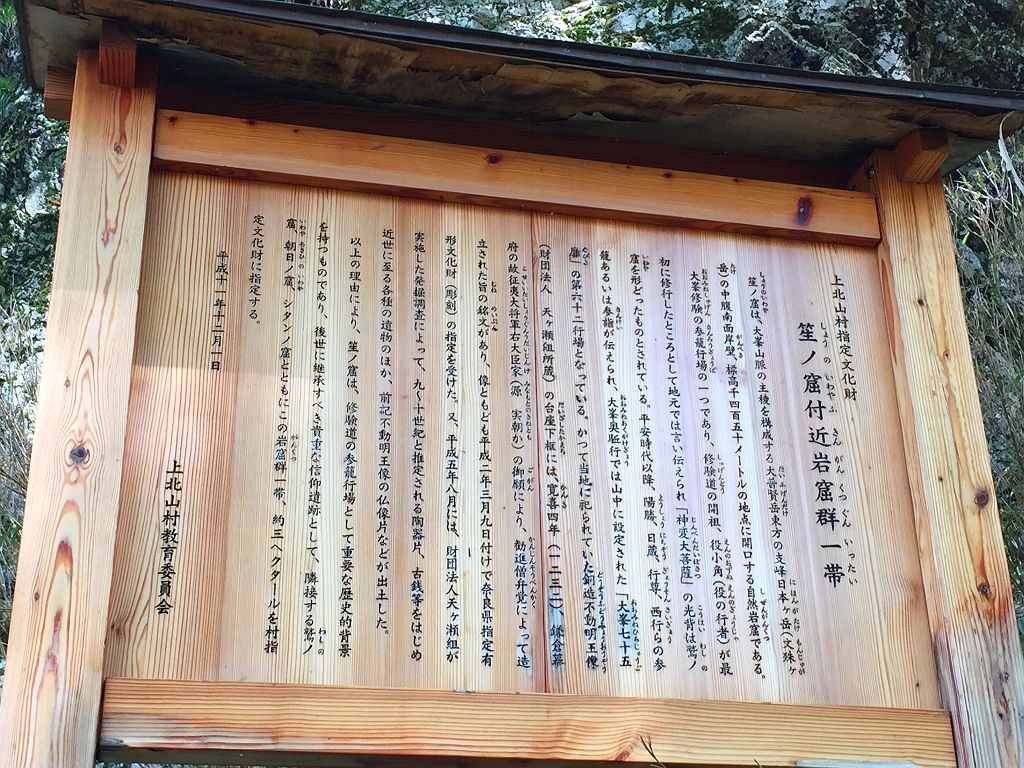 上北山村指定文化財
笙ノ窟付近岩窟群一帯
しょうのいわやふきんがんくつぐんいったい
笙ノ窟は、大峯山脈の主稜を構成する大普賢岳東方の支峰日本ヶ岳(文殊ヶ
岳)の中腹南面岸壁、標高千四百五十メートルの地点に開口する自然岩窟である。
大峯修験の参籠行場の一つであり、修験道の開祖、役小角(役の行者)が最
初に修行したところとして地元では言い伝えられ「神変大菩薩」の光背は鷲ノ
窟を形どったものとされている。平安時代以降、陽勝、日蔵、行尊、西行らの参
籠あるいは参詣が伝えられ、大峯奥駈行では山中に設定された「大峯七十五
靡」の第六十二行場となっている。かつて当地に祀られていた銅造不動明王像
(財団法人 天ヶ瀬組所蔵)の台座下框には、寛喜四年(一二三二)、鎌倉幕
府の故征夷大将軍右大臣家(源 実朝か)の御願により、勧進僧弁覚によって造
立された旨の銘文があり、像ともども平成二年三月九日付けで奈良県指定有
形文化財(彫刻)の指定を受けた。又、平成五年八月には、財団法人天ヶ瀬組が
実施した発掘調査によって、九〜十世紀と推定される陶器片、古銭等をはじめ
近世に至る各種の遺物のほか、前記不動明王像の仏像片などが出土した。
以上の理由により、笙ノ窟は、修験道の参籠行場として重要な歴史的背景
を持つものであり、後世に継承すべき貴重な信仰遺跡として、隣接する鷲ノ
窟、朝日ノ窟、シタンノ窟とともにこの岩窟群一帯、約三ヘクタールを村指
定文化財に指定する。
平成十一年十二月一日
上北山村教育委員会